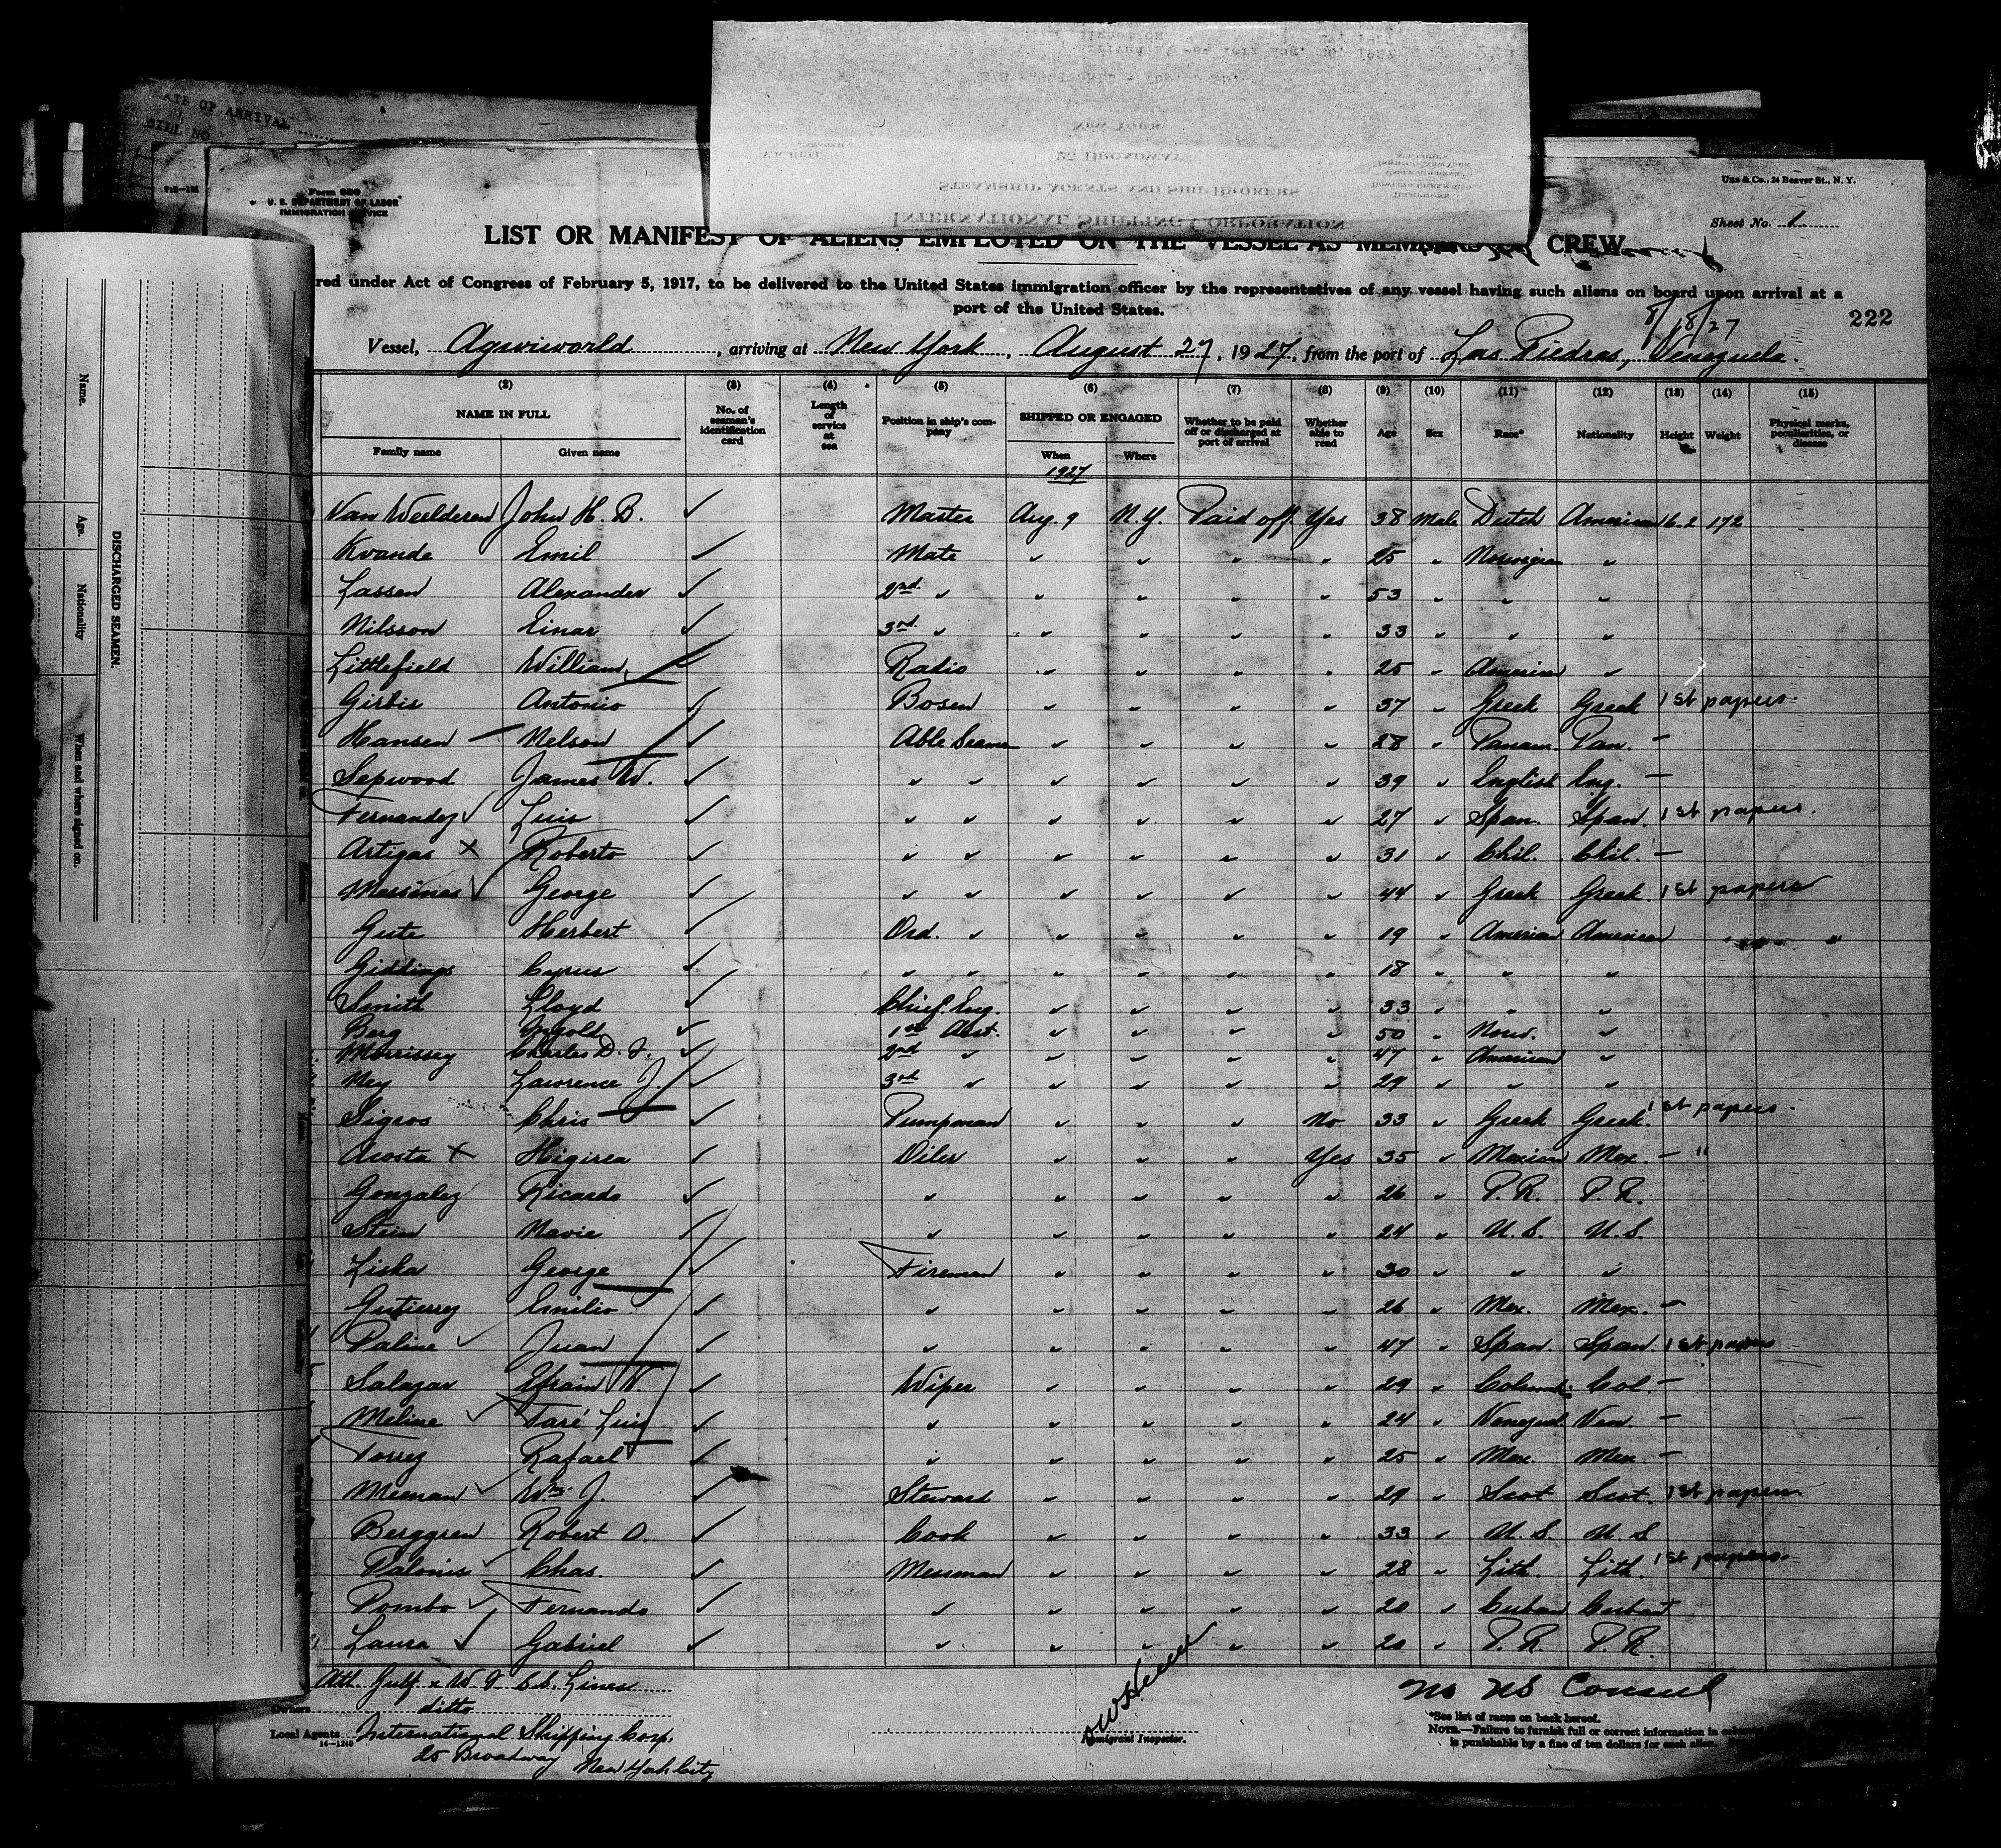 Form 680
U. S. DEPARTMENT OF LABOR
IMMIGRATION SERVICE
Unz & Co., 24 Beaver St., N. Y.
Sheet No. 1
LIST OR MANIFEST OF ALIENS EMPLOYED ON THE VESSEL AS MEMBERS OF CREW
red under Act of Congress of February 5, 1917, to be delivered to the United States immigration officer by the representatives of any vessel having such aliens on board upon arrival at a
port of the United States.
8/18/27
222
Vessel, Agwiworld, arriving at New York, August 27, 1927, from the port of Las Piedras, Venezuela.
(2) (3) (4) (5) (6) (7) (8) (9) (10) (11) (12) (13) (14) (15)
NAME IN FULL No. of seaman's identification card Length of service at sea Position in ship's company SHIPPED OR ENGAGED Whether to be paid off or discharged at port of arrival Whether able to read Age Sex Race* Nationality Height Weight Physical marks, peculiarities, or disease
Family name Given name When Where
1927
Van Weelderen John H. B. ✓ Master Aug. 9 N.Y. Paid off Yes 38 Male Dutch American 6-2 172
Kvande Emil ✓ Mate " " " " 25 " Norwegian "
Lassen Alexander ✓ 2nd " " " " " 53 " " "
Nilsson Einar ✓ 3rd " " " " " 33 " " "
Littlefield William ✓ Radio " " " " 25 " American "
Girbis Antonio ✓ Bosen " " " " 37 " Greek Greek 1st papers
Hansen Nelson ✓ Able Seaman " " " " 28 " Panam. Pan. -
Sepwood James W. ✓ " " " " " " 39 " English Eng. -
Fernandez Luis ✓ " " " " " " 27 " Span. Span. 1st papers.
Artigas x Roberto ✓ " " " " " " 31 " Chil. Chil. -
Messinas George ✓ " " " " " " 44 " Greek Greek 1st papers
Gute Herbert ✓ Ord. " " " " " 19 " American American
Giddings Cyrus ✓ " " " " " " 18 " " "
Smith Lloyd ✓ Chief Eng. " " " " 33 " " "
Berg Ingold ✓ 1st Asst. " " " " 50 " Norw. "
Morrissey Charles D. J. ✓ 2nd " " " " " 47 " American "
Ney Lawrence J. ✓ 3rd " " " " " 29 " " "
Sigros Chris ✓ Pumpman " " " No 33 " Greek Greek 1st papers.
Acosta x Higirea ✓ Oiler " " " Yes 35 " Mexican Mex. - "
Gonzalez Ricardo ✓ " " " " " 26 " P. R. P. R.
Stein Mavie ✓ " " " " " 24 " U. S. U. S.
Liska George ✓ Fireman " " " " 30 " " "
Gutierrez Emilio ✓ " " " " " 26 " Mex. Mex. -
Paline Juan ✓ " " " " " 47 " Span. Span. 1st papers
Salazar Efrain W. ✓ Wiper " " " " 29 " Colomb. Col. -
Meline Faré Luis ✓ " " " " " 24 " Venezuel Ven. -
Torrez Rafael ✓ " " " " " 25 " Mex. Mex. -
Meenan Wm. J. ✓ Steward " " " " 29 " Scot Scot. 1st papers
Berggren Robert O. ✓ Cook " " " " 33 " U. S. U. S
Palonis Chas. ✓ Messman " " " " 28 " Lith. Lith. 1st papers.
Pombo Fernando ✓ " " " " " 20 " Cuban Cuban
Laura Gabriel ✓ " " " " " 20 " P. R. P. R.
Atl. Gulf & W. I. S.S. Lines
Owners ditto
Local Agents International Shipping Corp.
14-1240
25 Broadway New York City
Immigrant Inspector.
No US Consul
*See list of races on back hereof.
NOTE.—Failure to furnish full or correct information in
is punishable by a fine of ten dollars for each alien.
DATE OF ARRIVAL
BILL NO
INTERNATIONAL SHIPPING CORPORATION
STEAMSHIP AGENTS AND SHIP BROKERS
25 BROADWAY
NEW YORK
DISCHARGED SEAMEN.
Name.
Age.
Nationality
When and where signed on.